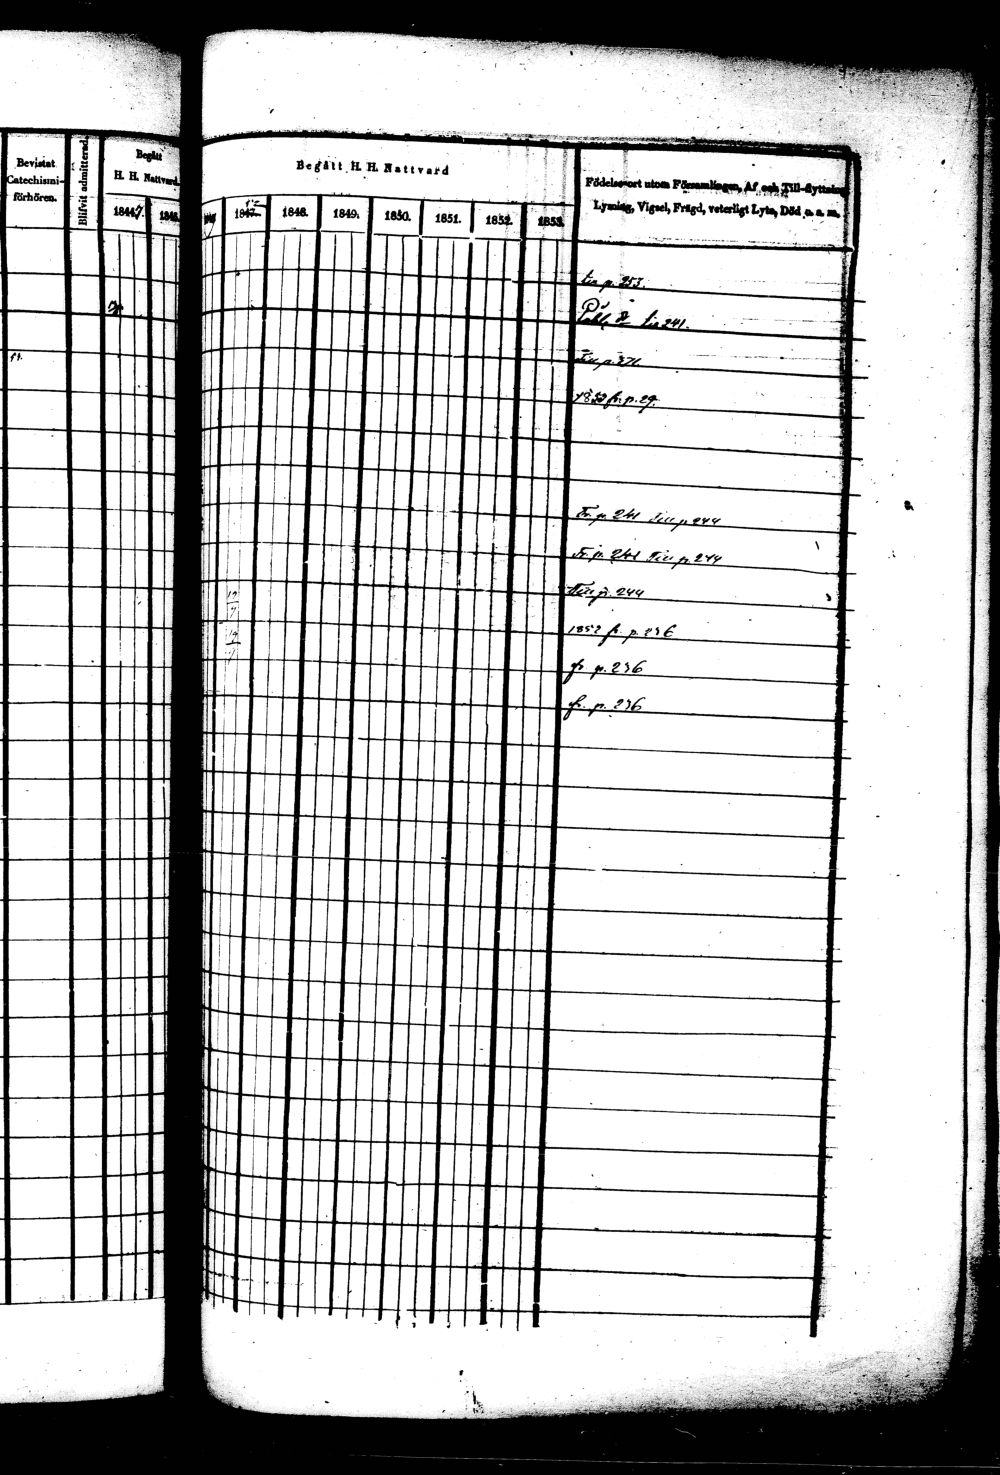 Bevistat
Catechismi-
förhören.
Blifvit admitterad.
Begått
H. H. Nattvard.
1844. 1845.
Begått H. H. Nattvard
1847. 1848. 1849. 1850. 1851. 1852. 1853.
Födelse-ort utom Församlingen, Af och Till-flyttning
Lysning, Vigsel, Frägd, veterligt Lyte, Död o. s. m.
till p. 253.
till 241.
Till p. 271.
fr. p. 29.
Fr. p. 241 Till p. 244
Fr. p. 241 Till p. 244
Till p. 244
1852 fr. p. 236
fr p. 236
fr. p. 236